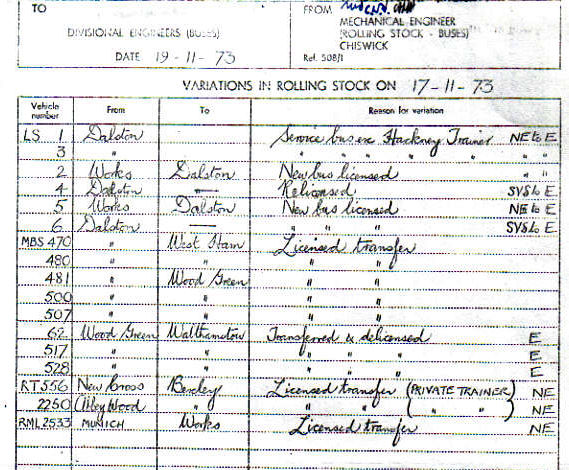 TO
FROM
MECHANICAL ENGINEER
DIVISIONAL ENGINEERS (BUSES)
(ROLLING STOCK - BUSES)
CHISWICK
DATE 19-11-73
Ref. 508/1
VARIATIONS IN ROLLING STOCK ON 17-11-73
Vehicle number From To Reason for variation
LS 1 Dalston Service bus ex Hackney Trainer NE to E
3 " " " " " " " "
2 Works Dalston New bus licensed " "
4 Dalston — Relicensed SVS to E
5 Works Dalston New bus licensed NE to E
6 Dalston — " " " SVS to E
MBS 470 " West Ham Licensed transfer
480 " " " "
481 " Wood Green " "
500 " " " "
507 " " " "
62 Wood Green Walthamstow Transferred & delicensed E
517 " " " " " E
528 " " " " " E
RT 556 New Cross Bexley Licensed transfer (PRIVATE TRAINER) NE
2250 Abbey Wood " " " ( " " ) NE
RML 2533 MUNICH Works Licensed transfer NE